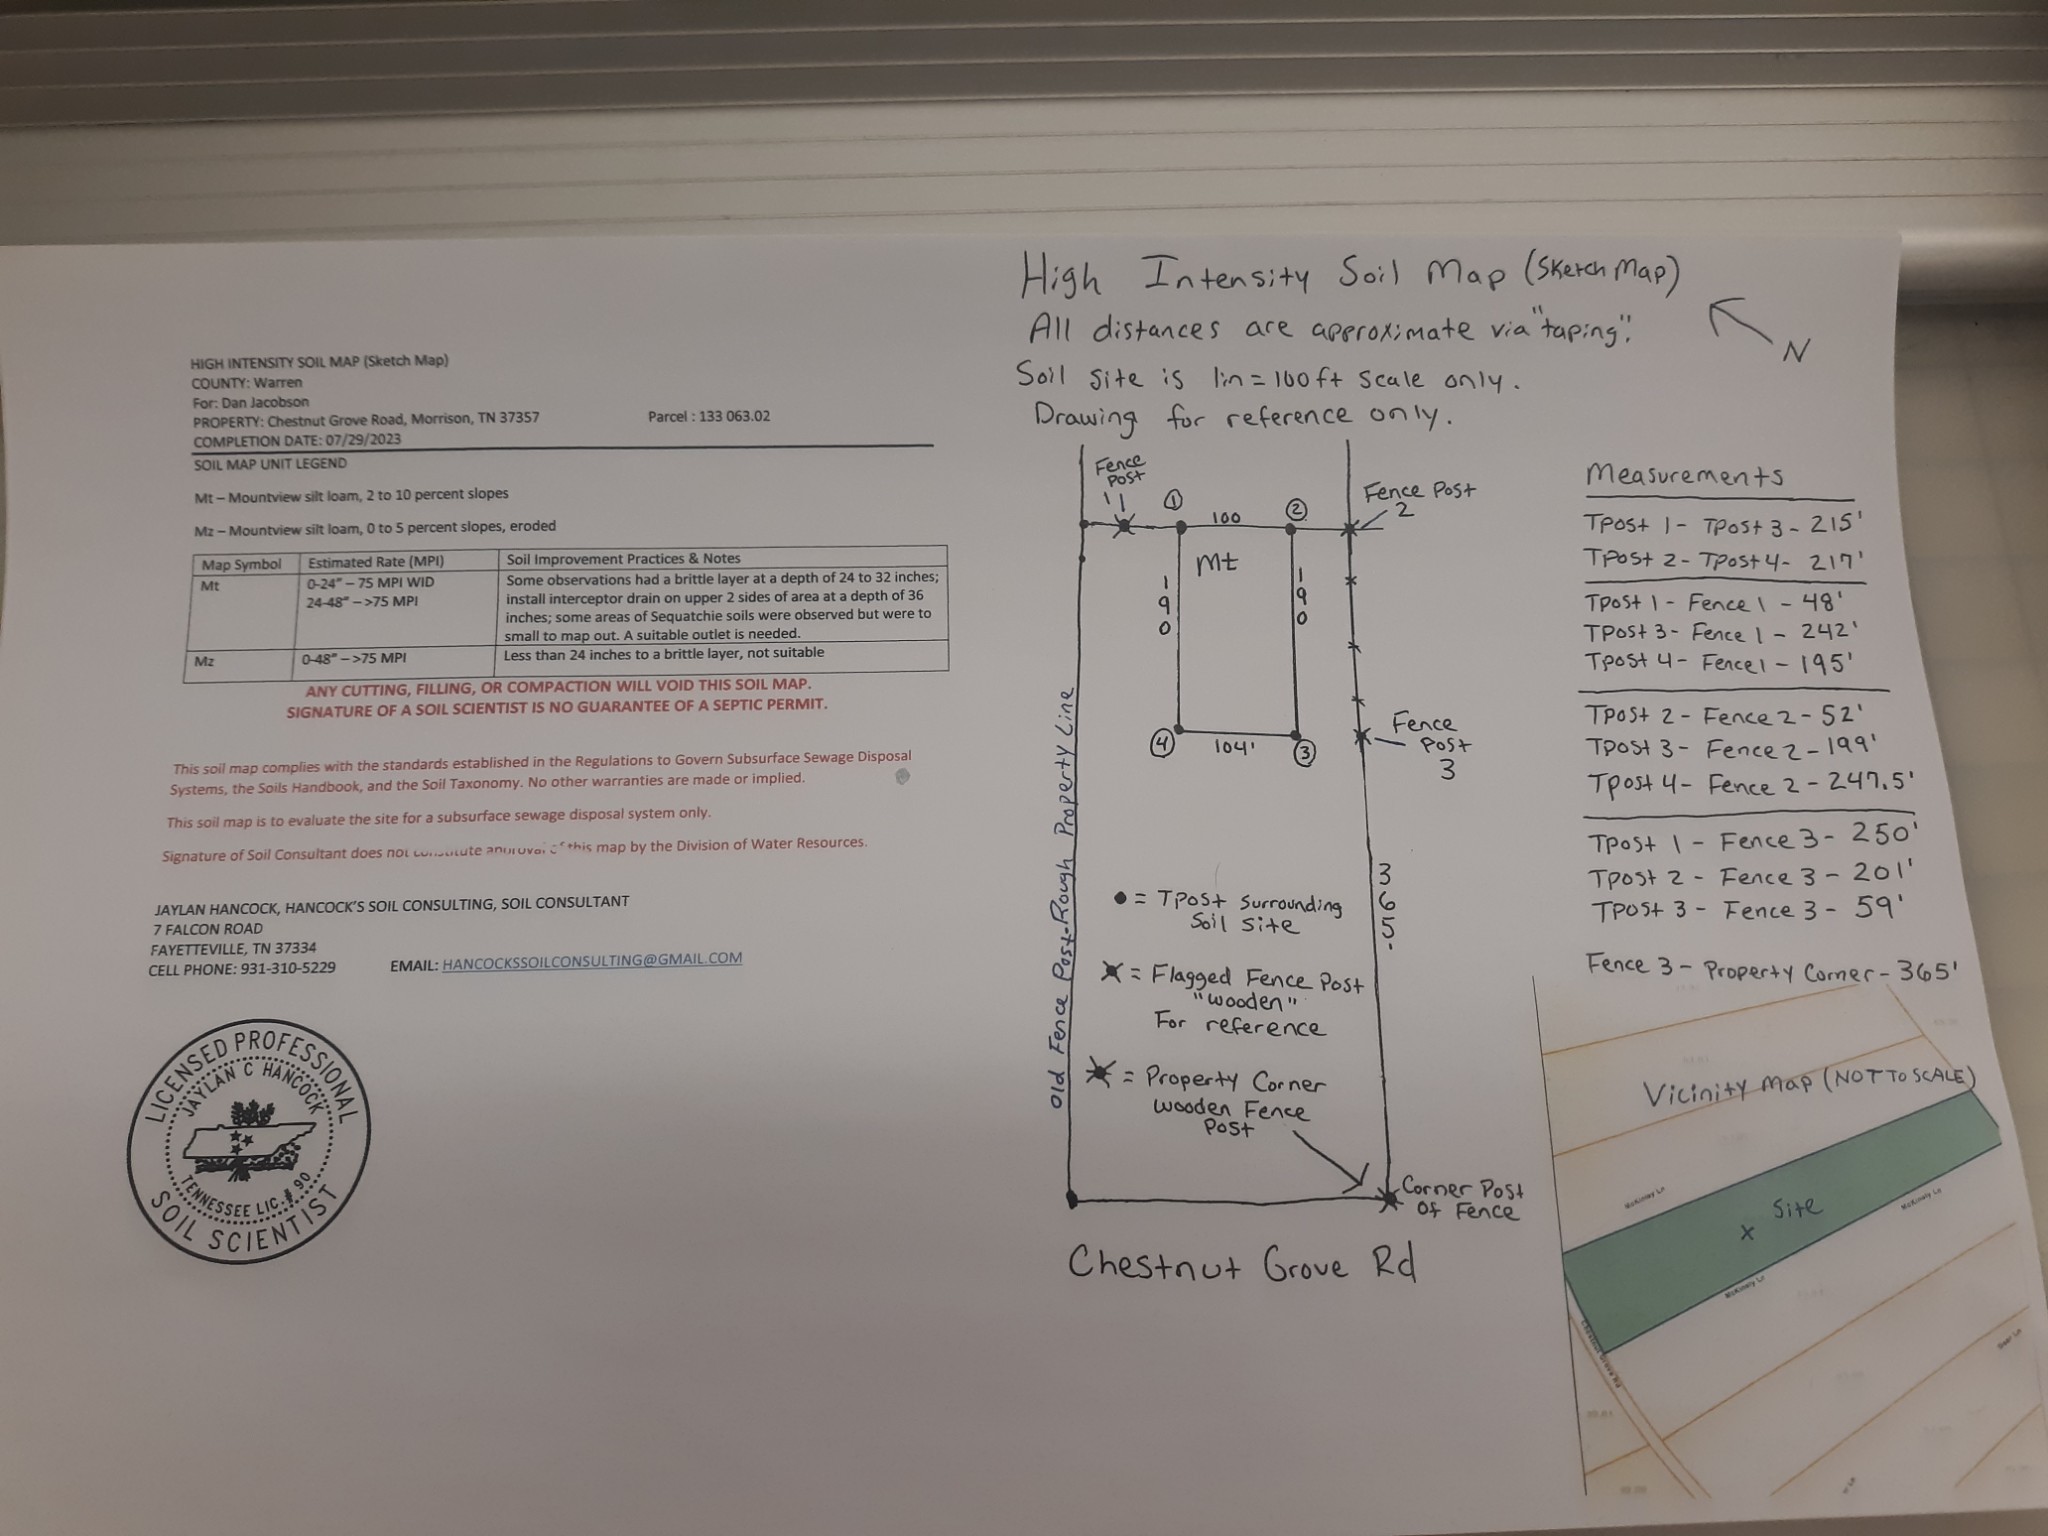 HIGH INTENSITY SOIL MAP (Sketch Map)
COUNTY: Warren
For: Dan Jacobson
PROPERTY: Chestnut Grove Road, Morrison, TN 37357 Parcel : 133 063.02
COMPLETION DATE: 07/29/2023
SOIL MAP UNIT LEGEND
Mt – Mountview silt loam, 2 to 10 percent slopes
Mz – Mountview silt loam, 0 to 5 percent slopes, eroded
Map Symbol Estimated Rate (MPI) Soil Improvement Practices & Notes
Mt 0-24" – 75 MPI WID Some observations had a brittle layer at a depth of 24 to 32 inches;
24-48" – >75 MPI install interceptor drain on upper 2 sides of area at a depth of 36
inches; some areas of Sequatchie soils were observed but were to
small to map out. A suitable outlet is needed.
Mz 0-48" – >75 MPI Less than 24 inches to a brittle layer, not suitable
ANY CUTTING, FILLING, OR COMPACTION WILL VOID THIS SOIL MAP.
SIGNATURE OF A SOIL SCIENTIST IS NO GUARANTEE OF A SEPTIC PERMIT.
This soil map complies with the standards established in the Regulations to Govern Subsurface Sewage Disposal
Systems, the Soils Handbook, and the Soil Taxonomy. No other warranties are made or implied.
This soil map is to evaluate the site for a subsurface sewage disposal system only.
Signature of Soil Consultant does not constitute approval of this map by the Division of Water Resources.
JAYLAN HANCOCK, HANCOCK'S SOIL CONSULTING, SOIL CONSULTANT
7 FALCON ROAD
FAYETTEVILLE, TN 37334
CELL PHONE: 931-310-5229 EMAIL: HANCOCKSSOILCONSULTING@GMAIL.COM
LICENSED PROFESSIONAL
JAYLAN C HANCOCK
TENNESSEE LIC. # 90
SOIL SCIENTIST
High Intensity Soil Map (Sketch Map)
All distances are approximate via "taping".
N
Soil site is 1in = 100ft scale only.
Drawing for reference only.
Fence
Post
1
1
100
2
Fence Post
2
Mt
190
190
4
104'
3
Fence
Post
3
Old Fence Post-Rough Property Line
365'
= TPost Surrounding
Soil Site
= Flagged Fence Post
"wooden"
For reference
= Property Corner
Wooden Fence
Post
Corner Post
Of Fence
Chestnut Grove Rd
Measurements
TPost 1 - TPost 3 - 215'
TPost 2 - TPost 4 - 217'
TPost 1 - Fence 1 - 48'
TPost 3 - Fence 1 - 242'
TPost 4 - Fence 1 - 195'
TPost 2 - Fence 2 - 52'
TPost 3 - Fence 2 - 199'
TPost 4 - Fence 2 - 247.5'
TPost 1 - Fence 3 - 250'
TPost 2 - Fence 3 - 201'
TPost 3 - Fence 3 - 59'
Fence 3 - Property Corner - 365'
Vicinity Map (NOT TO SCALE)
McKinley Ln
x Site
McKinely Ln
McKinely Ln
Chestnut Grove Rd